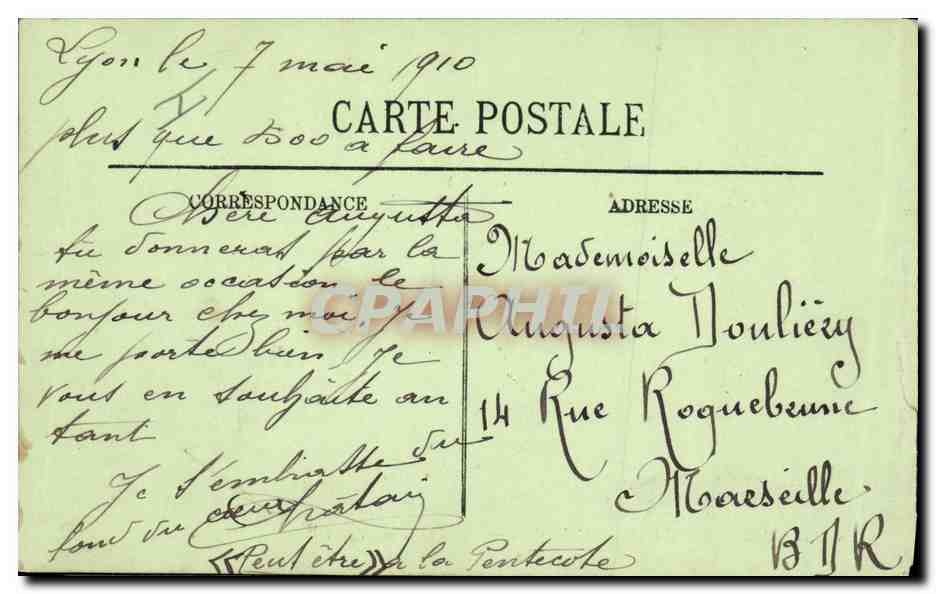 Lyon le 7 mai 1910
CARTE POSTALE
plus que 500 a faire
CORRESPONDANCE
Chère Augusta
tu donneras par la
même occasion le
bonjour chez moi. Je
me porte bien Je
vous en souhaite an
tant
Je t'embrasse du
fond du cœur
« Peut être » a la Pentecote
ADRESSE
Mademoiselle
Augusta Douliéry
14 Rue Roquebrune
Marseille
B D R
CPAPHIL